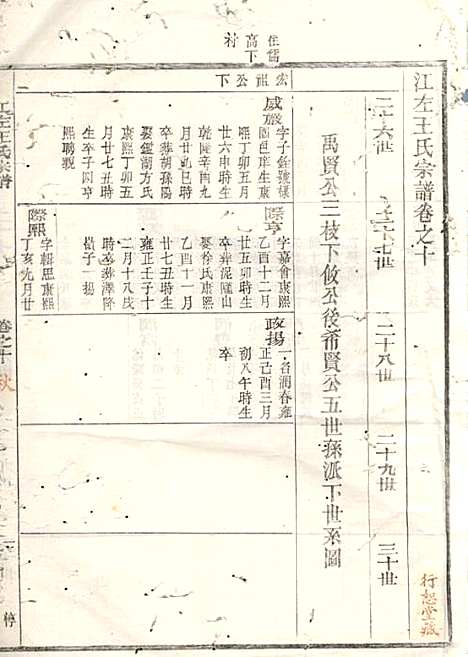 江左王氏宗譜卷之十
二十六世
二十七世
二十八世
二十九世
三十世
禹賢公三枝下攸公後希賢公五世孫派下世系圖
住儒
高下
村
宏祖公下
威嚴
字子鎡號
園邑庠生康
熙丁卯五月
廿六申時生
乾隆辛酉九
月廿九巳時
卒葬胡孫
娶鑑湖方氏
康熙丁卯五
月廿七丑時
生卒子四亨
熙
際亨
字嘉會康熙
乙酉十二月
廿五卯時生
卒葬泥隴山
娶徐氏康熙
乙酉十一月
廿七丑時生
雍正壬子十
二月十八戌
時卒葬澤降
嶺子一揚
際熙
字輯思康熙
丁亥九月廿
政揚
一名潤春雍
正己酉三月
初八午時生
卒
江左王氏宗譜
卷之十
秋
行恕堂藏